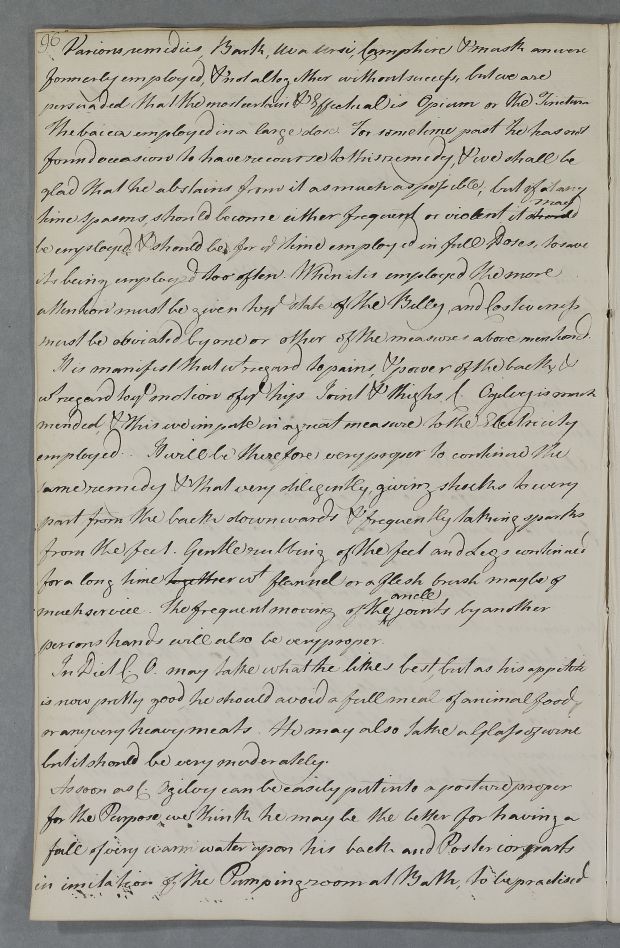 96
Various remedies, Bark, Uva ursi, Camphire & musk an were
formerly employed, & not altogether without success, but we are
persuaded that the most certain & Effectual is Opium or the Tinctura
Thebaica employed in a large dose. For sometime past he has not
found occasion to have recourse to this remedy, & we shall be
glad that he abstains from it as much as possible; but if at any
time spasms, should become either frequent or violent it may
be employed & should be, for yt time employed in full Doses, to save
its being employed too often. When it is employed the more
attention must be given to ye state of the Belly, and Costiveness
must be obviated by one or other of the measures above mentiond.
It is manifest that wt regard to pains, & power of the back, &
wt regard to ye motion of ye hip Joint & thighs, C. Ogilvy is much
mended, & this we impute in a great measure to the Electricity
employed. It will be therefore very proper to continue the
same remedy & that very diligently, giving shocks to every
part from the back downwards & frequently taking sparks
from the feet. Gentle rubbing of the feet and Legs continued
for a long time together wt flannel or a flesh brush may be of
much service. The frequent moving of the ancle joints by another
persons hands will also be very proper.
In Diet C. O. may take what he likes best, but as his appetite
is now pretty good he should avoid a full meal of animal food,
or any very heavy meats. He may also take a Glass of wine
but it should be very moderately.
As soon as C. Ogilvy can be easily put into a posture proper
for the Purpose, we think he may be the better for having a
fall of very warm water upon his back and Posterior parts
in imitation of the Pumping room at Bath, to be practised